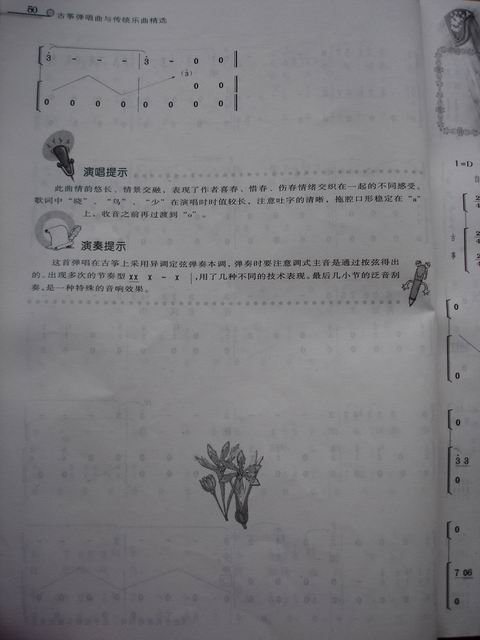 50 古筝弹唱曲与传统乐曲精选
3 - - - 3 - 0 0
(3)
0 0
0 0 0 0 0 0 0 0
演唱提示
此曲情韵悠长、情景交融，表现了作者喜春、惜春、伤春情绪交织在一起的不同感受。
歌词中“晓”、“鸟”、“少”在演唱时时值较长，注意吐字的清晰，拖腔口形稳定在“a”
上，收音之前再过渡到“o”。
演奏提示
这首弹唱在古筝上采用异调定弦弹奏本调，弹奏时要注意调式主音是通过按弦得出
的。出现多次的节奏型 xx x - x |，用了几种不同的技术表现。最后几小节的泛音刮
奏，是一种特殊的音响效果。
1=D
古
筝
0
0
0
3 3
0
0
7 06
0